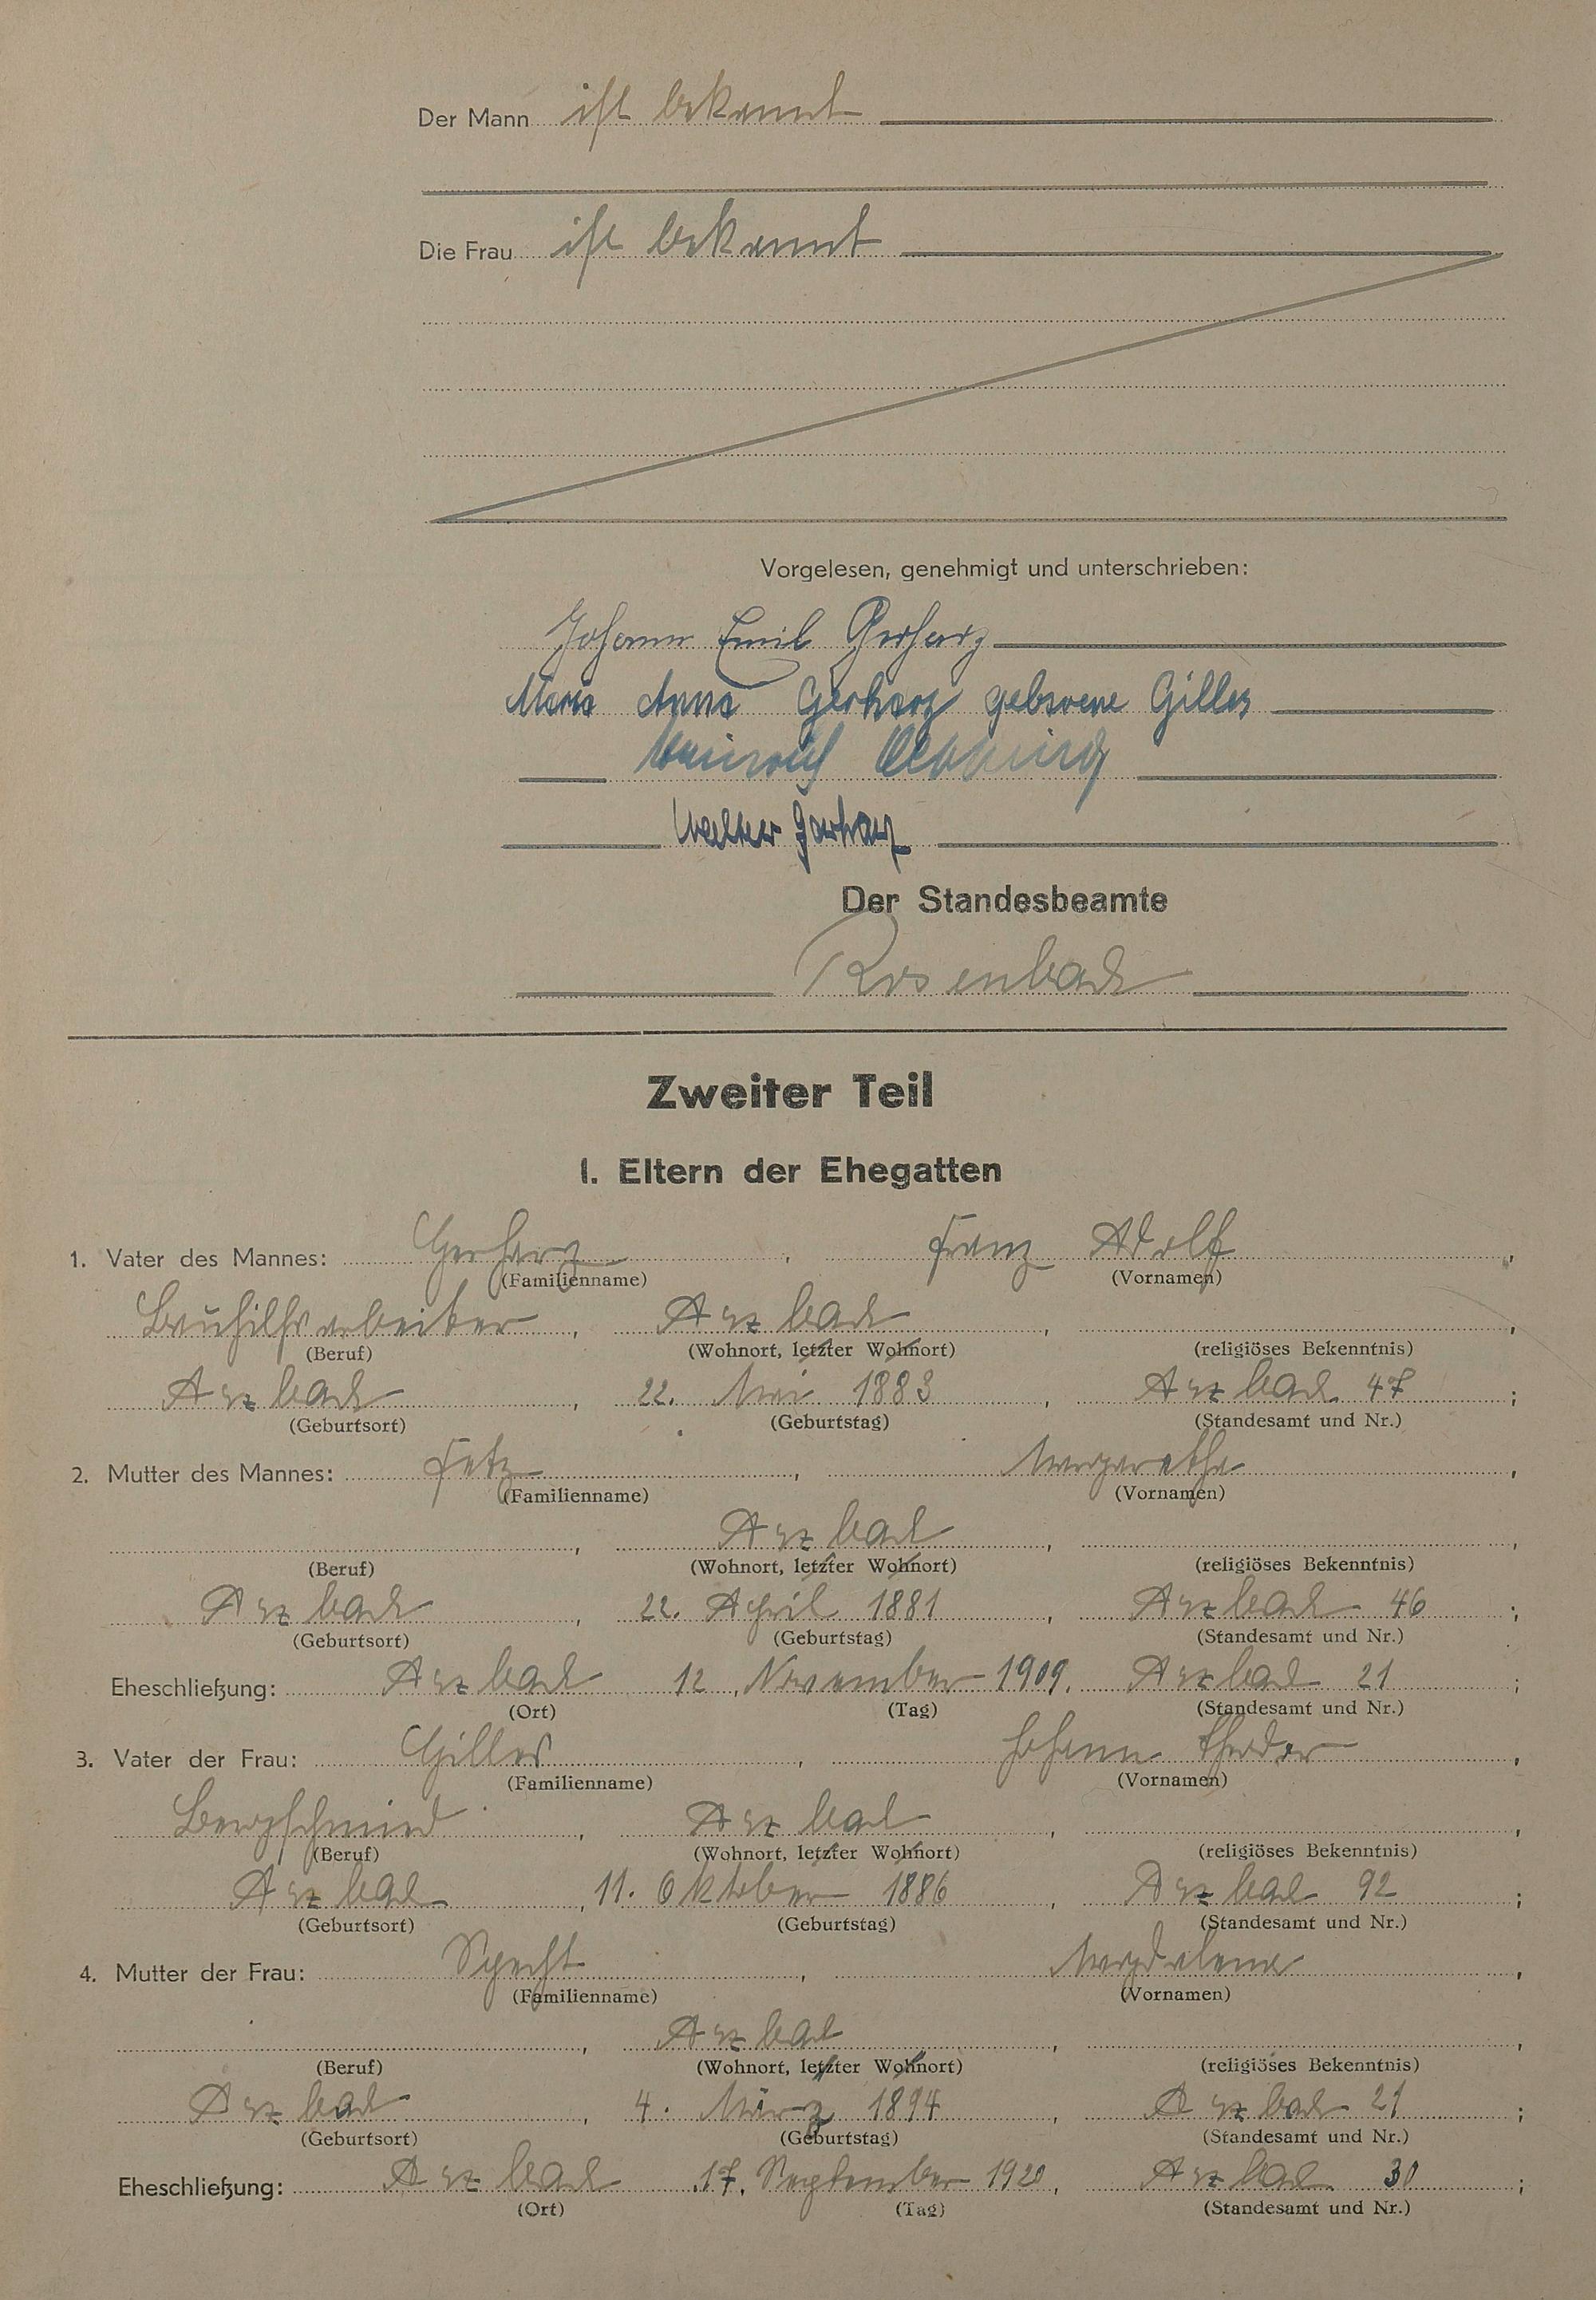 Der Mann ist bekannt
Die Frau ist bekannt
Vorgelesen, genehmigt und unterschrieben:
Johann Emil Gerharz
Maria Anna Gerharz geborene Gilles
Heinrich
Walter Gerharz
Der Standesbeamte
Rosenbach
Zweiter Teil
I. Eltern der Ehegatten
1. Vater des Mannes: Gerharz, Franz Adolf,
(Familienname) (Vornamen)
Bauhilfsarbeiter, Arzbach, ,
(Beruf) (Wohnort, letzter Wohnort) (religiöses Bekenntnis)
Arzbach, 22. Mai 1883, Arzbach 47;
(Geburtsort) (Geburtstag) (Standesamt und Nr.)
2. Mutter des Mannes: Fetz, Margaretha,
(Familienname) (Vornamen)
, Arzbach, ,
(Beruf) (Wohnort, letzter Wohnort) (religiöses Bekenntnis)
Arzbach, 22. April 1881, Arzbach 46;
(Geburtsort) (Geburtstag) (Standesamt und Nr.)
Eheschließung: Arzbach 12. November 1909. Arzbach 21;
(Ort) (Tag) (Standesamt und Nr.)
3. Vater der Frau: Gilles, Johann Theodor,
(Familienname) (Vornamen)
Bergschmied, Arzbach, ,
(Beruf) (Wohnort, letzter Wohnort) (religiöses Bekenntnis)
Arzbach, 11. Oktober 1886, Arzbach 92;
(Geburtsort) (Geburtstag) (Standesamt und Nr.)
4. Mutter der Frau: Specht, Magdalena,
(Familienname) (Vornamen)
, Arzbach, ,
(Beruf) (Wohnort, letzter Wohnort) (religiöses Bekenntnis)
Arzbach, 4. März 1894, Arzbach 21;
(Geburtsort) (Geburtstag) (Standesamt und Nr.)
Eheschließung: Arzbach 17. September 1920, Arzbach 30;
(Ort) (Tag) (Standesamt und Nr.)